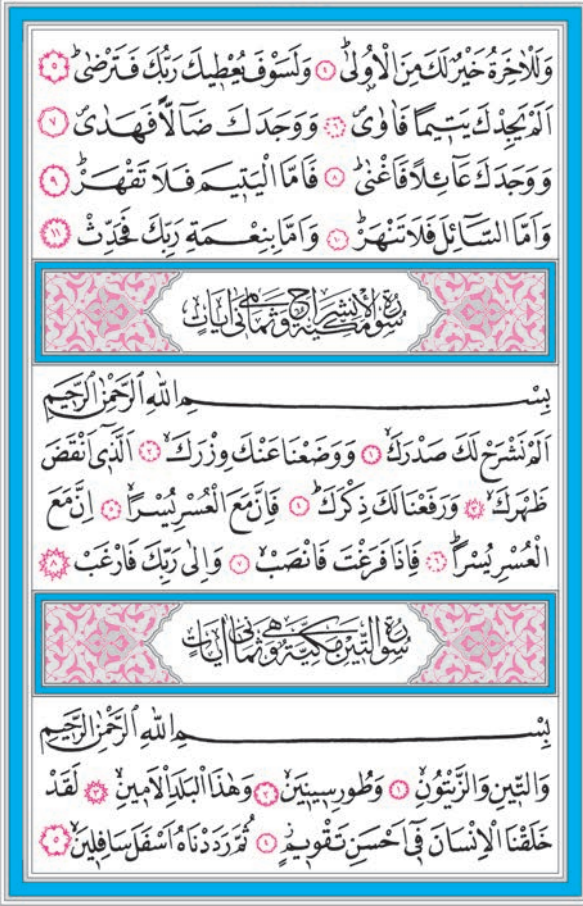 وَلَلْاٰخِرَةُ خَيْرٌ لَكَ مِنَ الْاُو۫لٰىۜ ﴿٤﴾ وَلَسَوْفَ يُعْط۪يكَ رَبُّكَ فَتَرْضٰىۜ ﴿٥﴾
اَلَمْ يَجِدْكَ يَت۪يمًا فَاٰوٰىۖ ﴿٦﴾ وَوَجَدَكَ ضَٓالًّا فَهَدٰىۖ ﴿٧﴾
وَوَجَدَكَ عَٓائِلًا فَاَغْنٰىۜ ﴿٨﴾ فَاَمَّا الْيَت۪يمَ فَلَا تَقْهَرْۜ ﴿٩﴾
وَاَمَّا السَّٓائِلَ فَلَا تَنْهَرْۜ ﴿١٠﴾ وَاَمَّا بِنِعْمَةِ رَبِّكَ فَحَدِّثْ ﴿١١﴾
سُورَةُ الْاِنْشِرَاحِ مَكِّيَّةٌ وَهِيَ ثَمَانِي اٰيَاتٍ
بِسْمِ اللّٰهِ الرَّحْمٰنِ الرَّح۪يمِ
اَلَمْ نَشْرَحْ لَكَ صَدْرَكَۙ ﴿١﴾ وَوَضَعْنَا عَنْكَ وِزْرَكَۙ ﴿٢﴾ اَلَّذ۪ٓي اَنْقَضَ
ظَهْرَكَۙ ﴿٣﴾ وَرَفَعْنَا لَكَ ذِكْرَكَۜ ﴿٤﴾ فَاِنَّ مَعَ الْعُسْرِ يُسْرًاۙ ﴿٥﴾ اِنَّ مَعَ
الْعُسْرِ يُسْرًاۜ ﴿٦﴾ فَاِذَا فَرَغْتَ فَانْصَبْۙ ﴿٧﴾ وَاِلٰى رَبِّكَ فَارْغَبْ ﴿٨﴾
سُورَةُ التّ۪ينِ مَكِّيَّةٌ وَهِيَ ثَمَانِي اٰيَاتٍ
بِسْمِ اللّٰهِ الرَّحْمٰنِ الرَّح۪يمِ
وَالتّ۪ينِ وَالزَّيْتُونِۙ ﴿١﴾ وَطُورِ س۪ين۪ينَۙ ﴿٢﴾ وَهٰذَا الْبَلَدِ الْاَم۪ينِۙ ﴿٣﴾ لَقَدْ
خَلَقْنَا الْاِنْسَانَ ف۪ٓي اَحْسَنِ تَقْو۪يمٍۘ ﴿٤﴾ ثُمَّ رَدَدْنَاهُ اَسْفَلَ سَافِل۪ينَۙ ﴿٥﴾